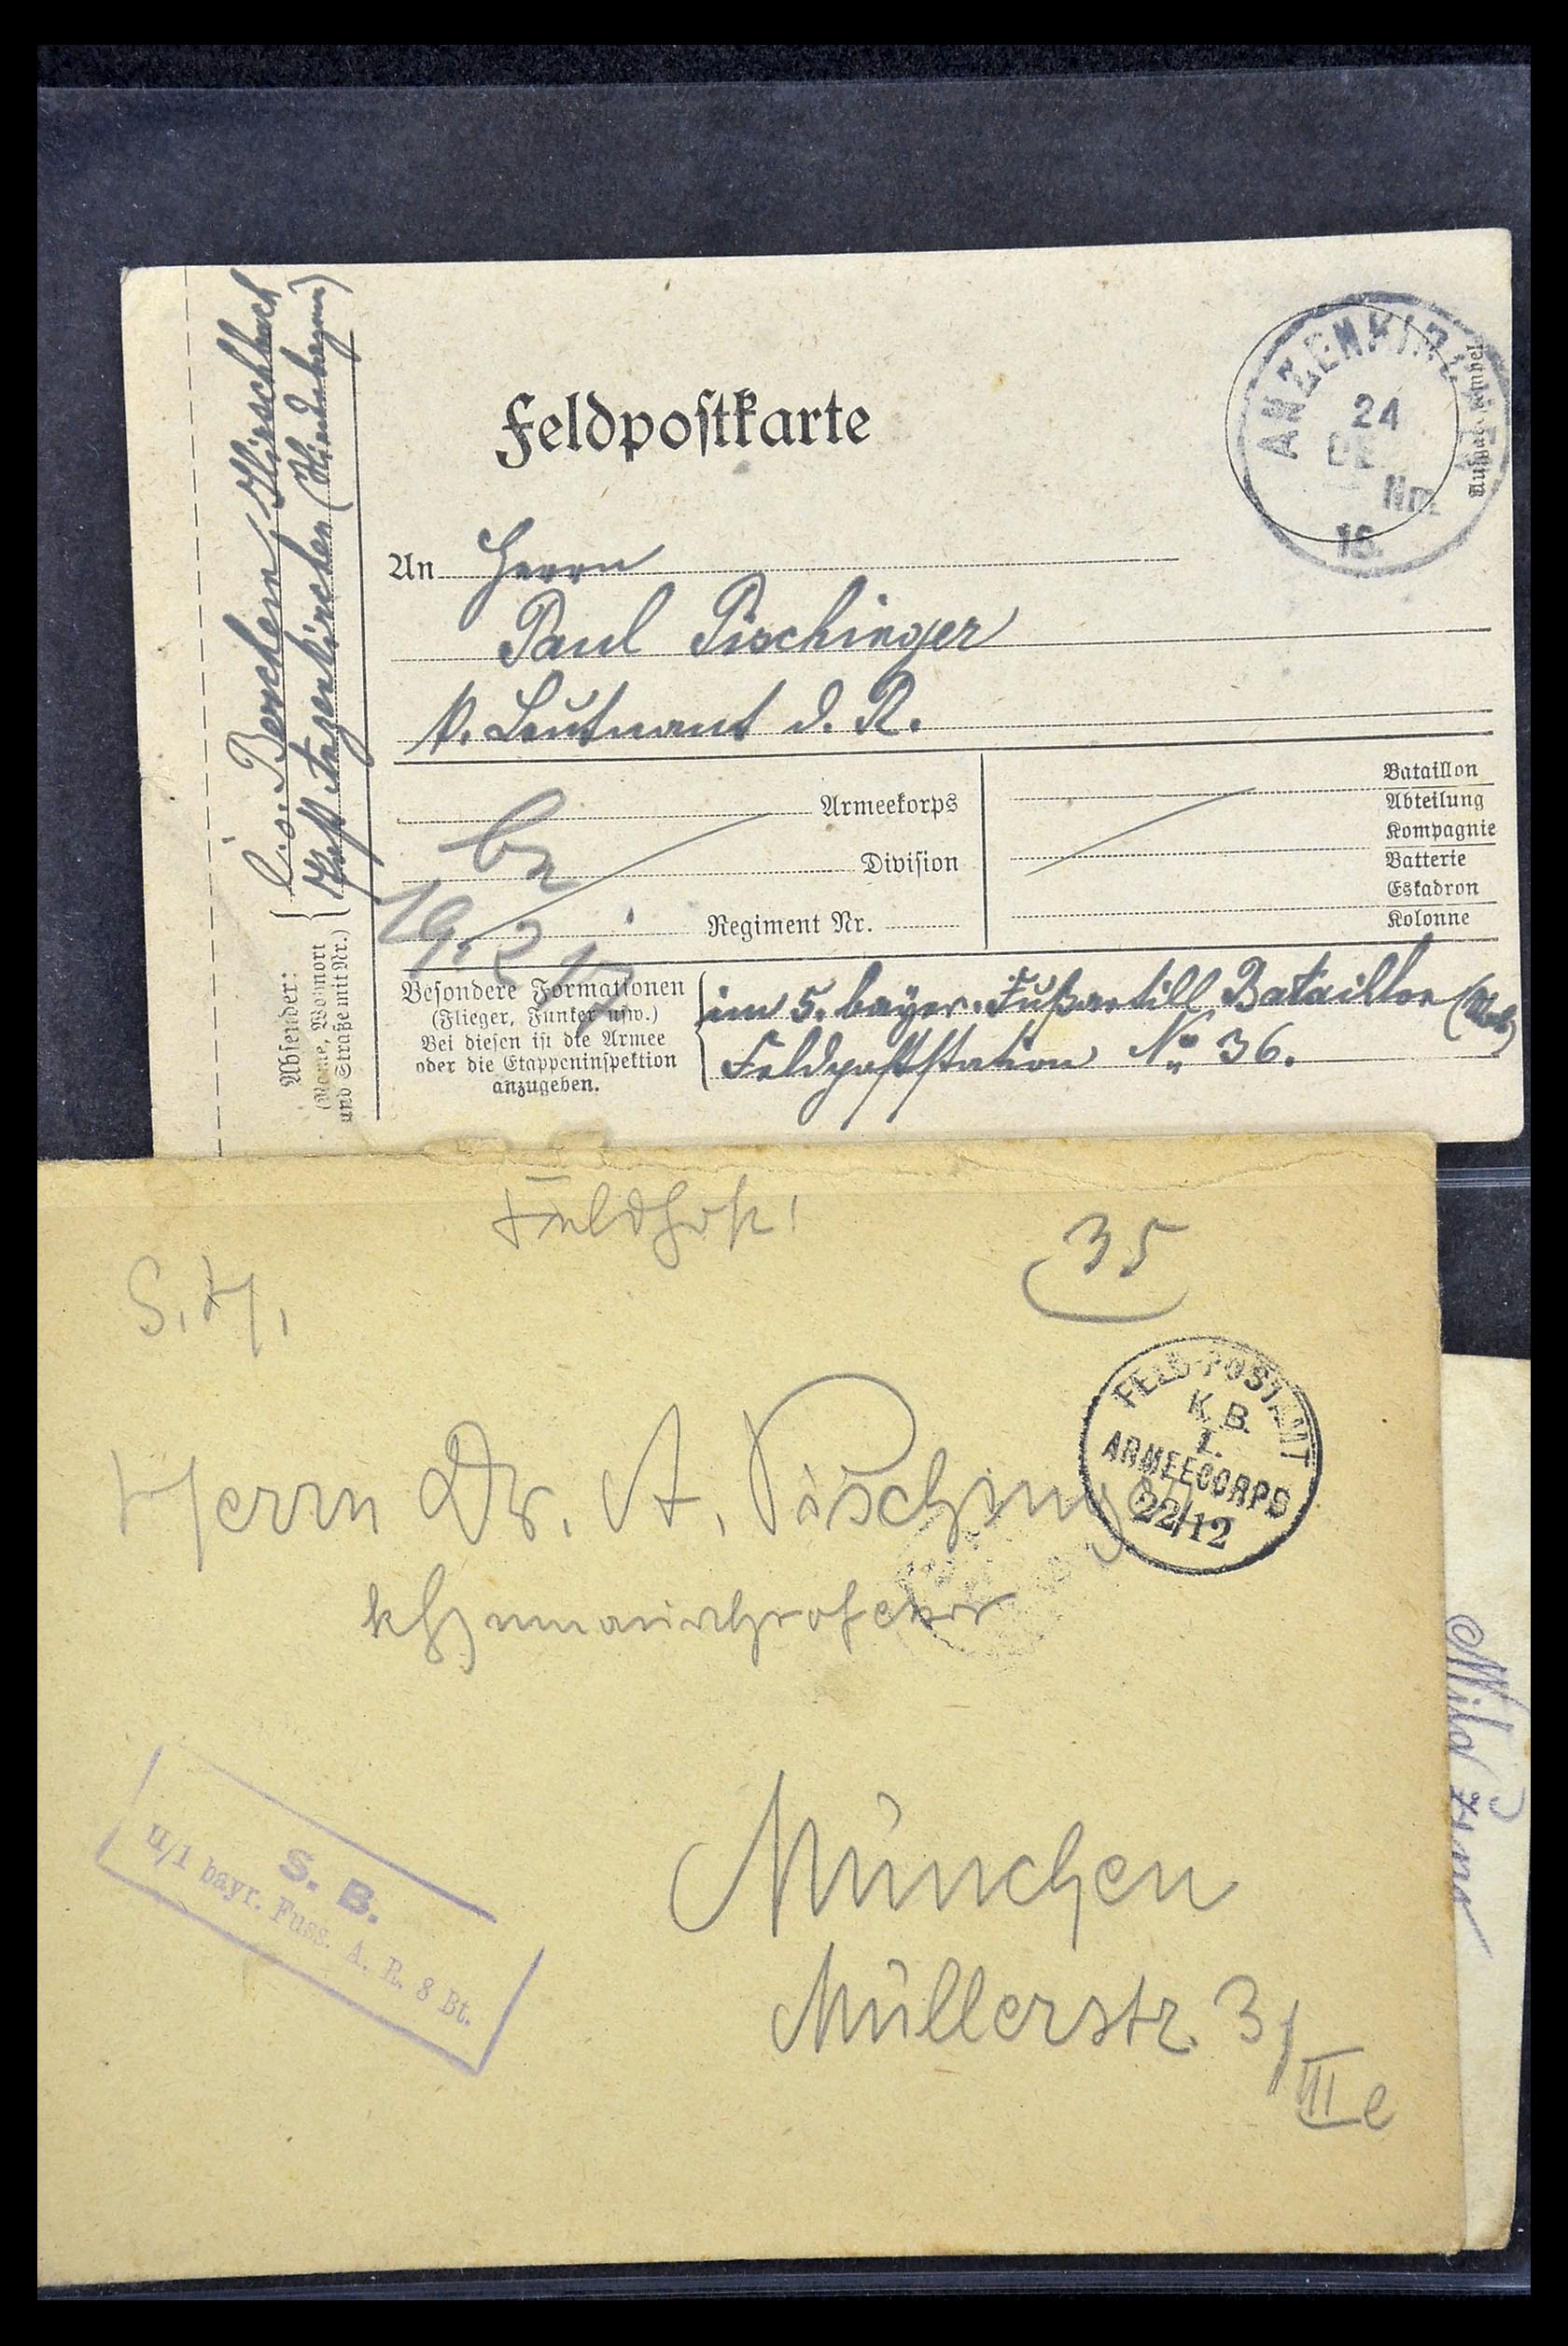 Feldpostkarte
ANZENKIRCHEN
24
DE
Nm.
16.
An Herrn
Paul Pischinger
k. Leutnant d. R.
Armeekorps
Division
Regiment Nr.
Bataillon
Abteilung
Kompagnie
Batterie
Eskadron
Kolonne
be
19. 2 17
Besondere Formationen
(Flieger, Funker usw.)
Bei diesen ist die Armee
oder die Etappeninspektion
anzugeben.
im 5. bayer. Fußartill Bataillon
Feldpoststation No 36.
Absender:
(Name, Wohnort
und Straße mit Nr.)
Berchem, Hirschbach
Post Anzenkirchen (Niederbayern)
Feldpost!
S. H.
35
FELD-POSTAMT
K. B.
I.
ARMEECORPS
22/12
Herrn Dr. A. Pischinger
München
Müllerstr. 3/
III e
S. B.
II/1 bayr. Fuss. A. R. 8 Bt.